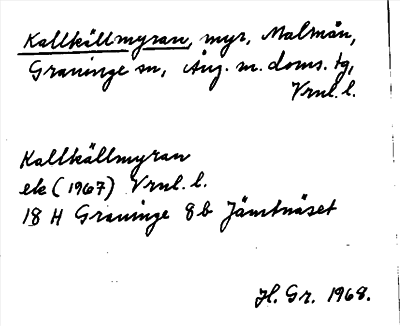 Kallkällmyran, myr, Malmån,
Graninge sn, Ång. m. doms. tg,
Vrnl. l.
Kallkällmyran
ek (1967) Vrnl. l.
18 H Graninge 8b Jämtnäset
H. Gr. 1968.